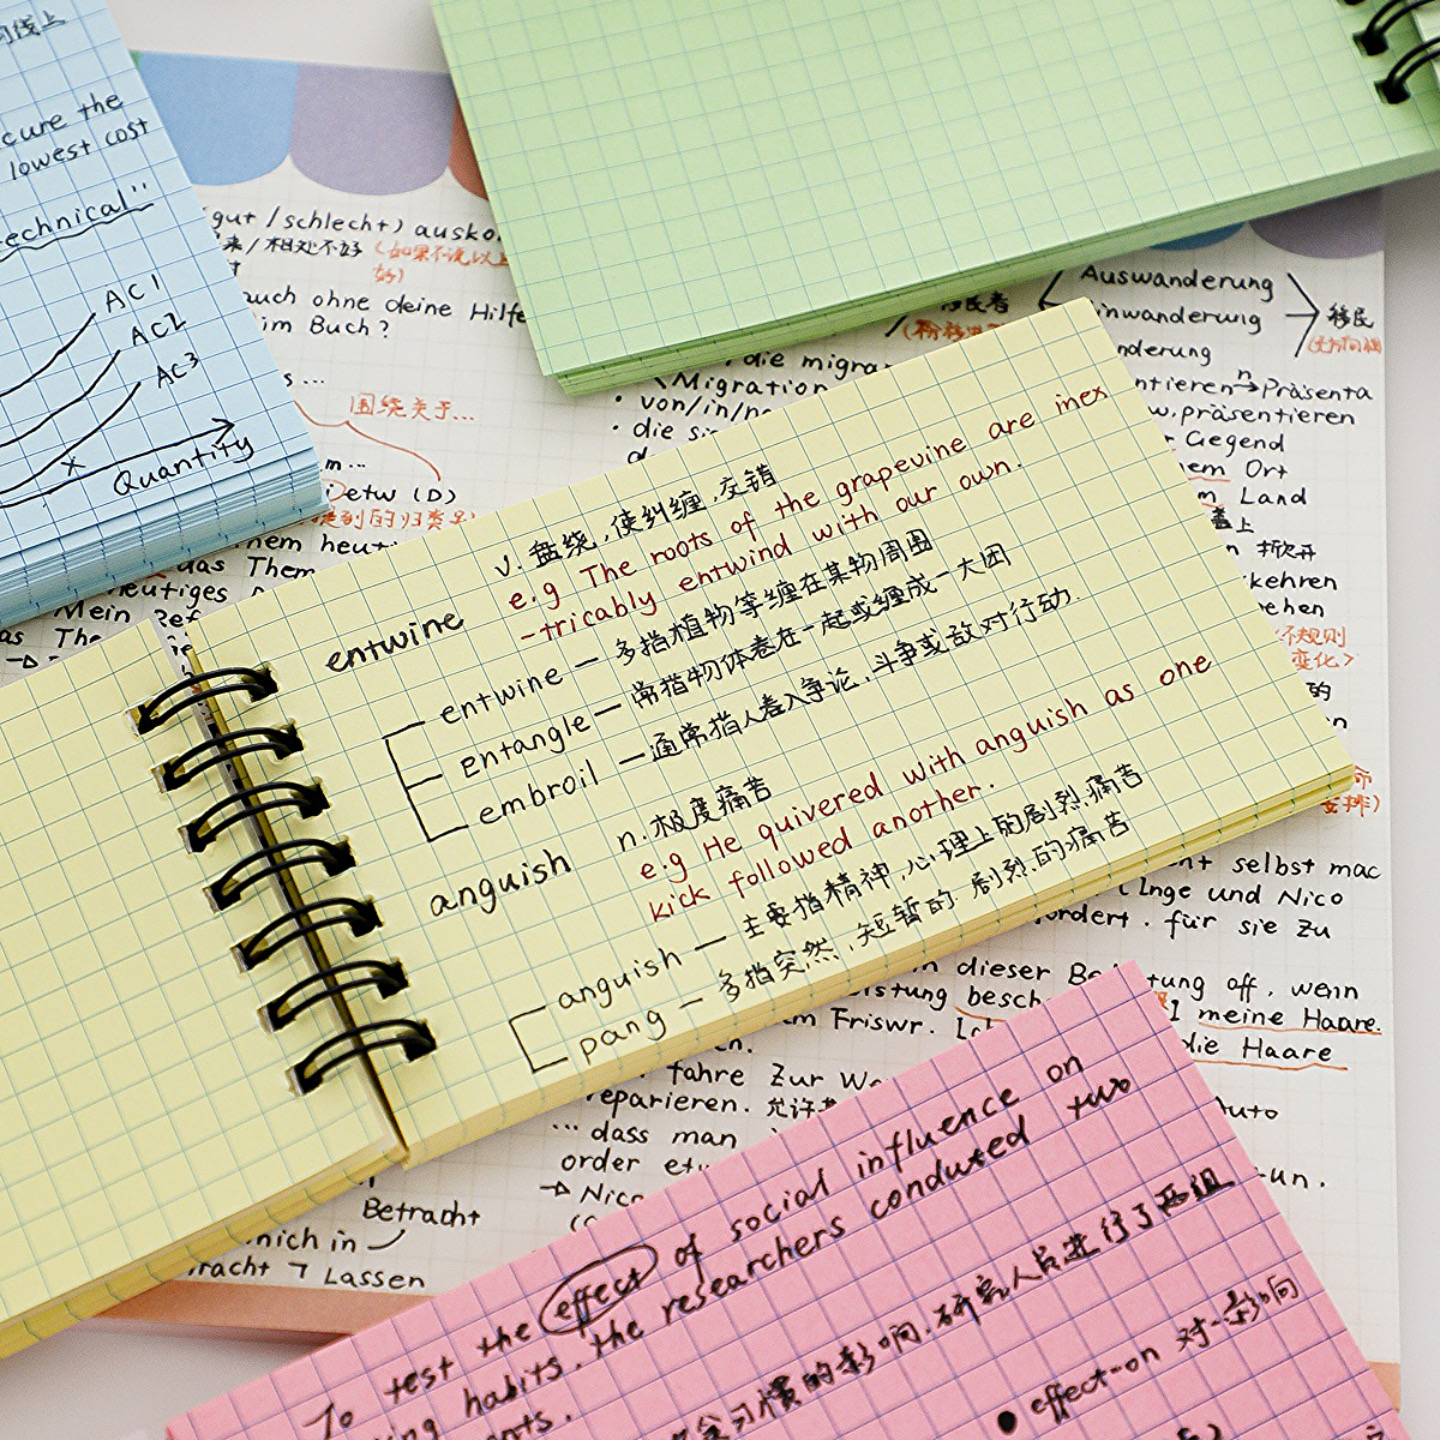 的线上
cure the
lowest cost
echnical"
AC1
AC2
AC3
Quantity
(gut / schlecht) ausko
来/相处不好 (如果不说以上
好)
auch ohne deine Hilfe
im Buch?
s ...
围绕关于...
m...
etw (D)
提到的归类
hem heut
das Them
eutiges
Mein Ref
as The
移民者
Auswanderung
inwanderung
移民
nderung
die migra
Migration
von/in/n
die si
ntieren → n Präsenta
w. präsentieren
Gegend
em Ort
m Land
上
n 拆开
kehren
ehen
不规则
变化>
的
n
v. 盘绕,使纠缠,交错
entwine
e.g The roots of the grapevine are inex
-tricably entwind with our own.
entwine — 多指植物等缠在某物周围
entangle — 常指物体卷在一起或缠成一大团
embroil — 通常指人卷入争论,斗争或敌对行动.
n. 极度痛苦
anguish
e.g He quivered with anguish as one
kick followed another.
anguish — 主要指精神,心理上的剧烈痛苦
pang — 多指突然,短暂的 剧烈的痛苦
命
安排)
nt selbst mac
(Inge und Nico
ordert. für sie zu
n dieser Be
tung off, wenn
istung besch
I meine Haare.
m Friswr. Ich
die Haare
en.
fahre zur We
eparieren. 允许
Auto
... dass man
order etw
un.
→ Nico
Betracht
mich in
racht
Lassen
To test the effect of social influence on
ing habits, the researchers conduted two
ents.
食习惯的影响,研究人员进行了两组
effect-on 对-影响